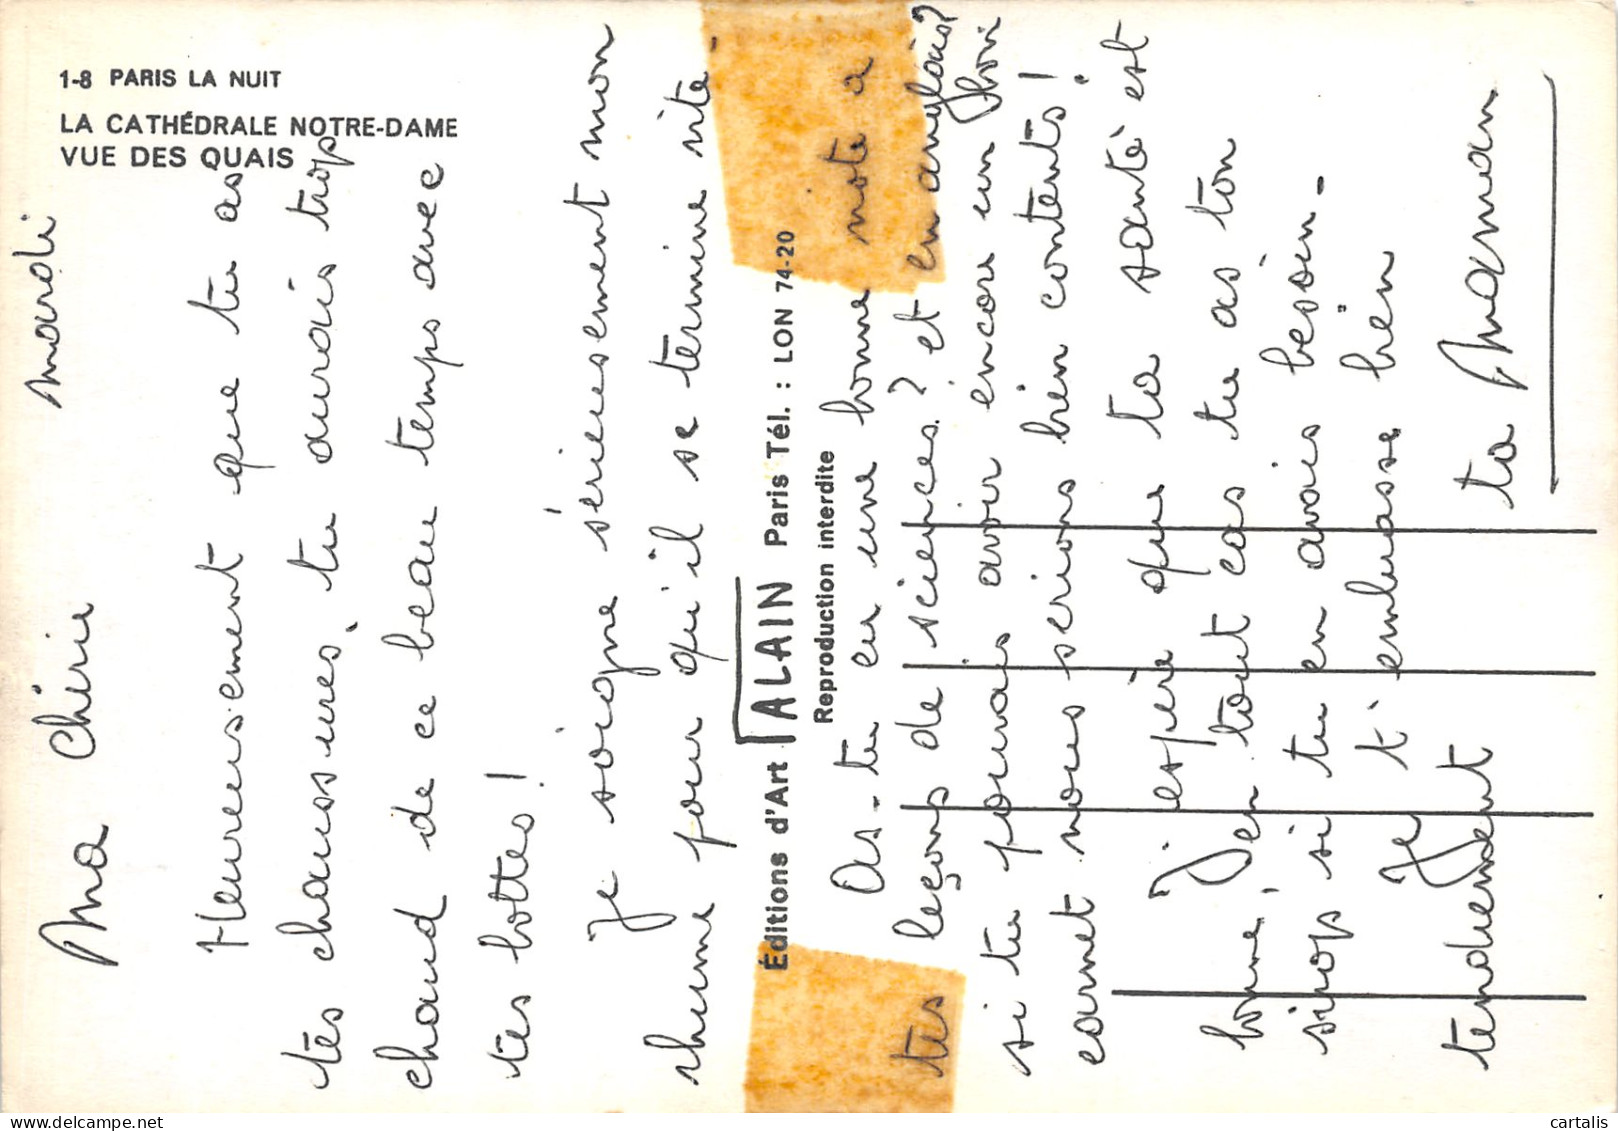 1-8 PARIS LA NUIT
LA CATHÉDRALE NOTRE-DAME
VUE DES QUAIS
mardi
Ma chérie
Heureusement que tu as
tes chaussures, tu aurais trop
chaud de ce beau temps avec
tes bottes !
Je soigne sérieusement mon
rhume pour qu'il se termine vite.
Éditions d'Art ALAIN Paris Tél. : LON 74-20
Reproduction interdite
As-tu eu une bonne note à
tes leçons de sciences ? et en anglais ?
si tu pouvais avoir encore un
carnet nous serions bien contents !
J'espère que ta santé est
bonne, en tout cas tu as ton
sirop si tu en avais besoin -
Je t'embrasse bien
tendrement
ta Maman
cartalis
www.delcampe.net